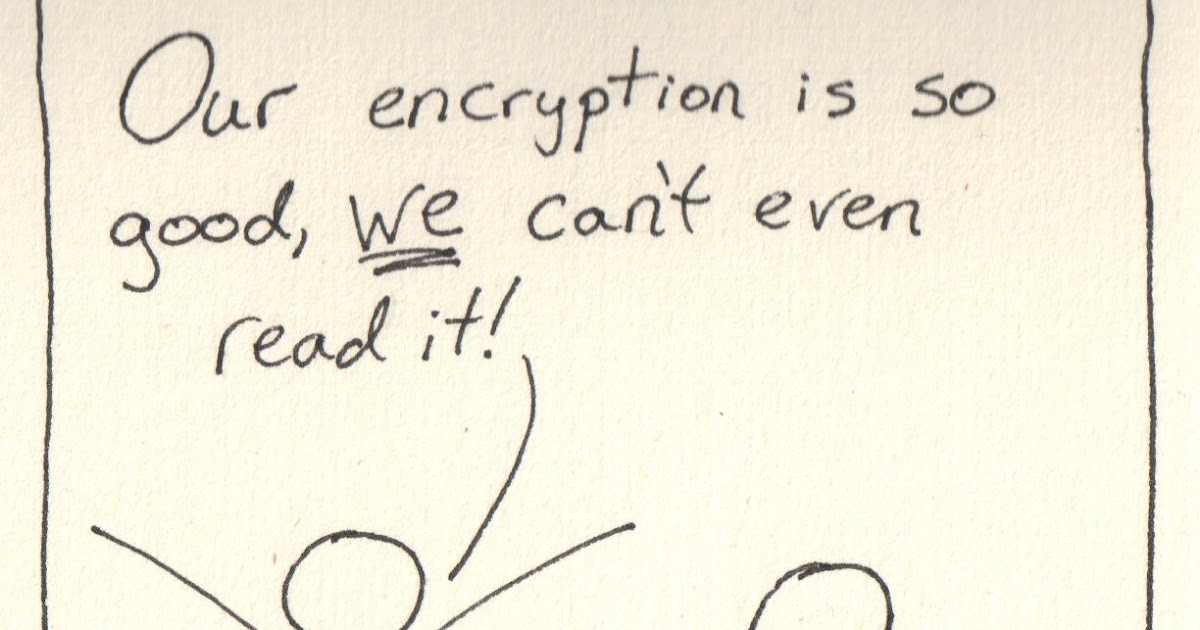 Our encryption is so
good, we can't even
read it!